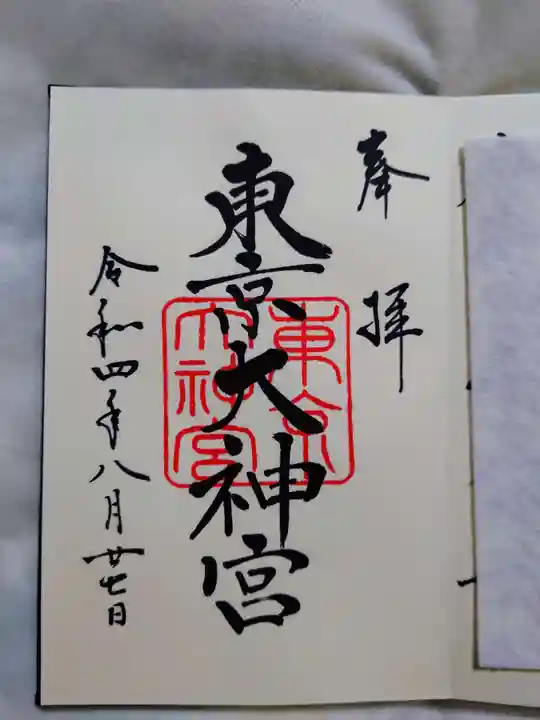 奉拝
東京大神宮
東京大神宮
令和四年八月廿七日